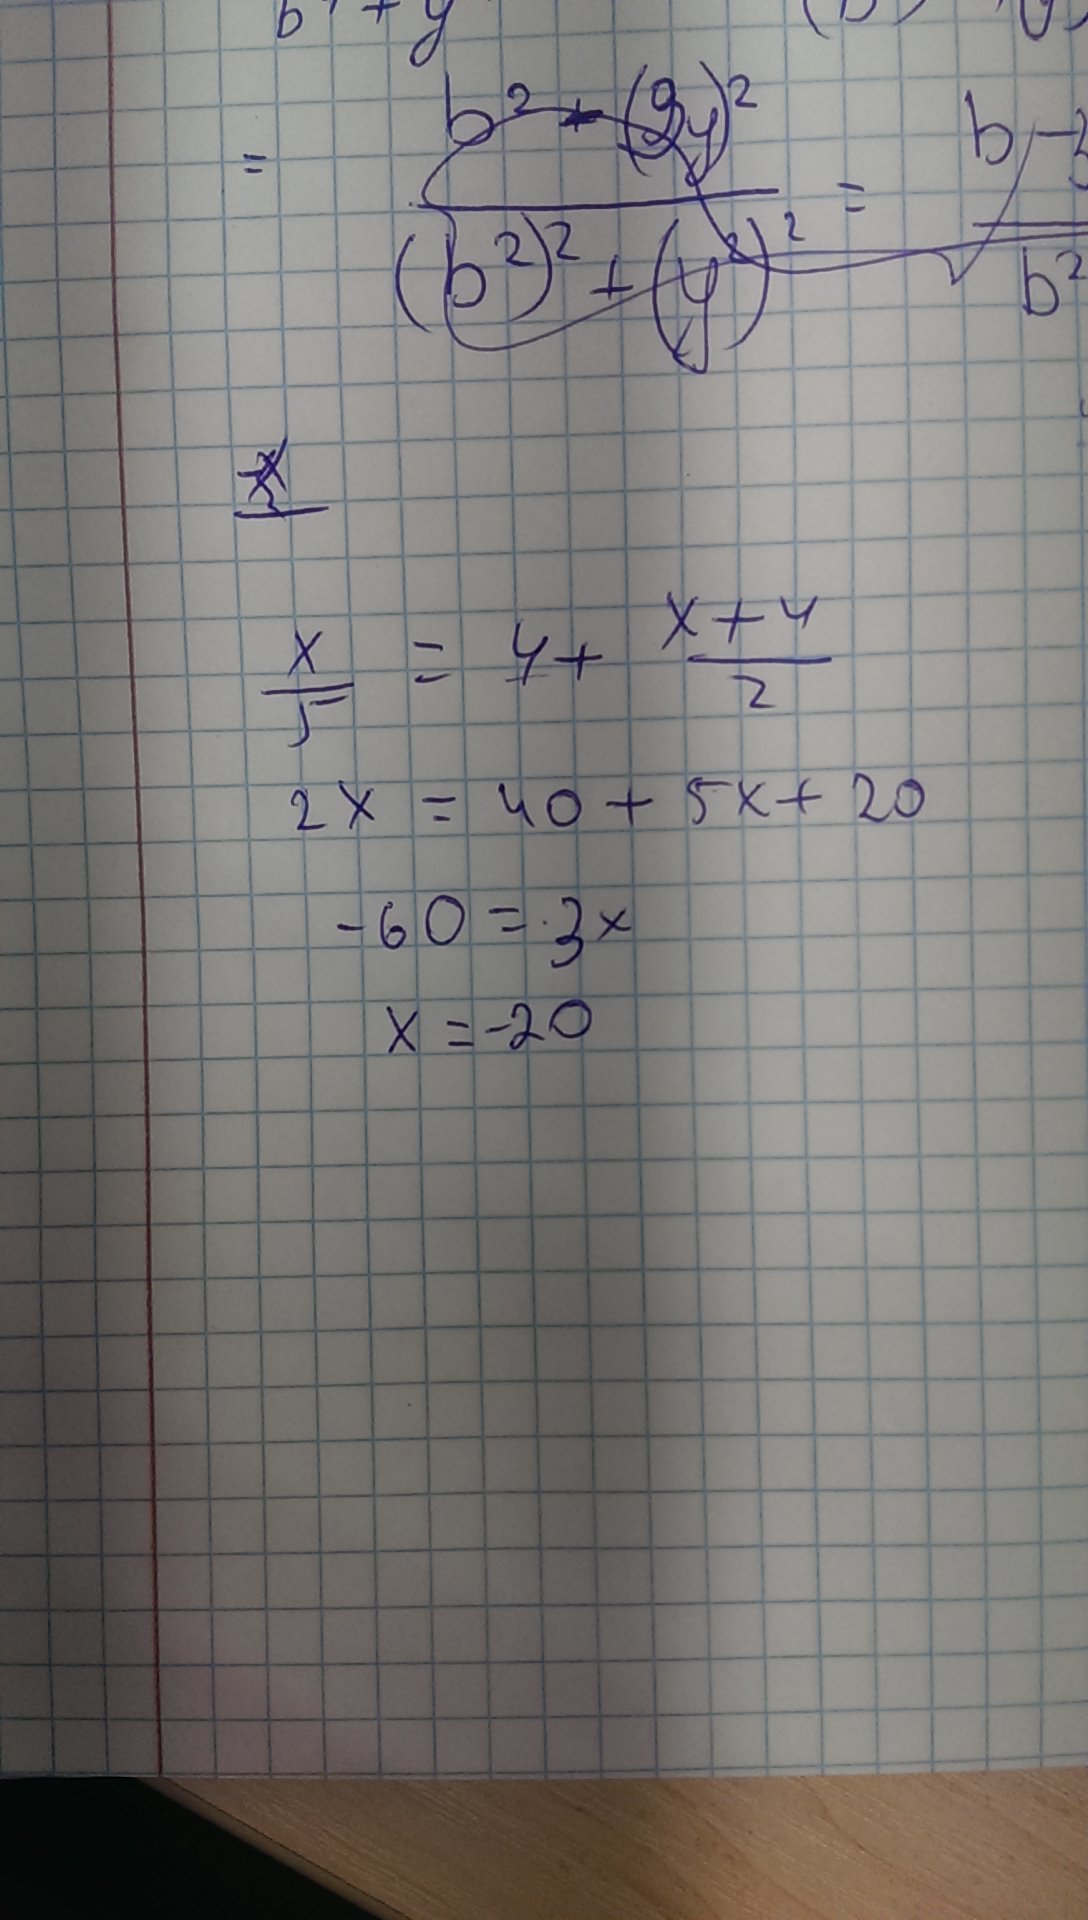 = b² + (9y)² / (b²)² + (y²)² = b - 3 / b²
x/5 = 4 + x+4/2
2x = 40 + 5x + 20
-60 = 3x
x = -20